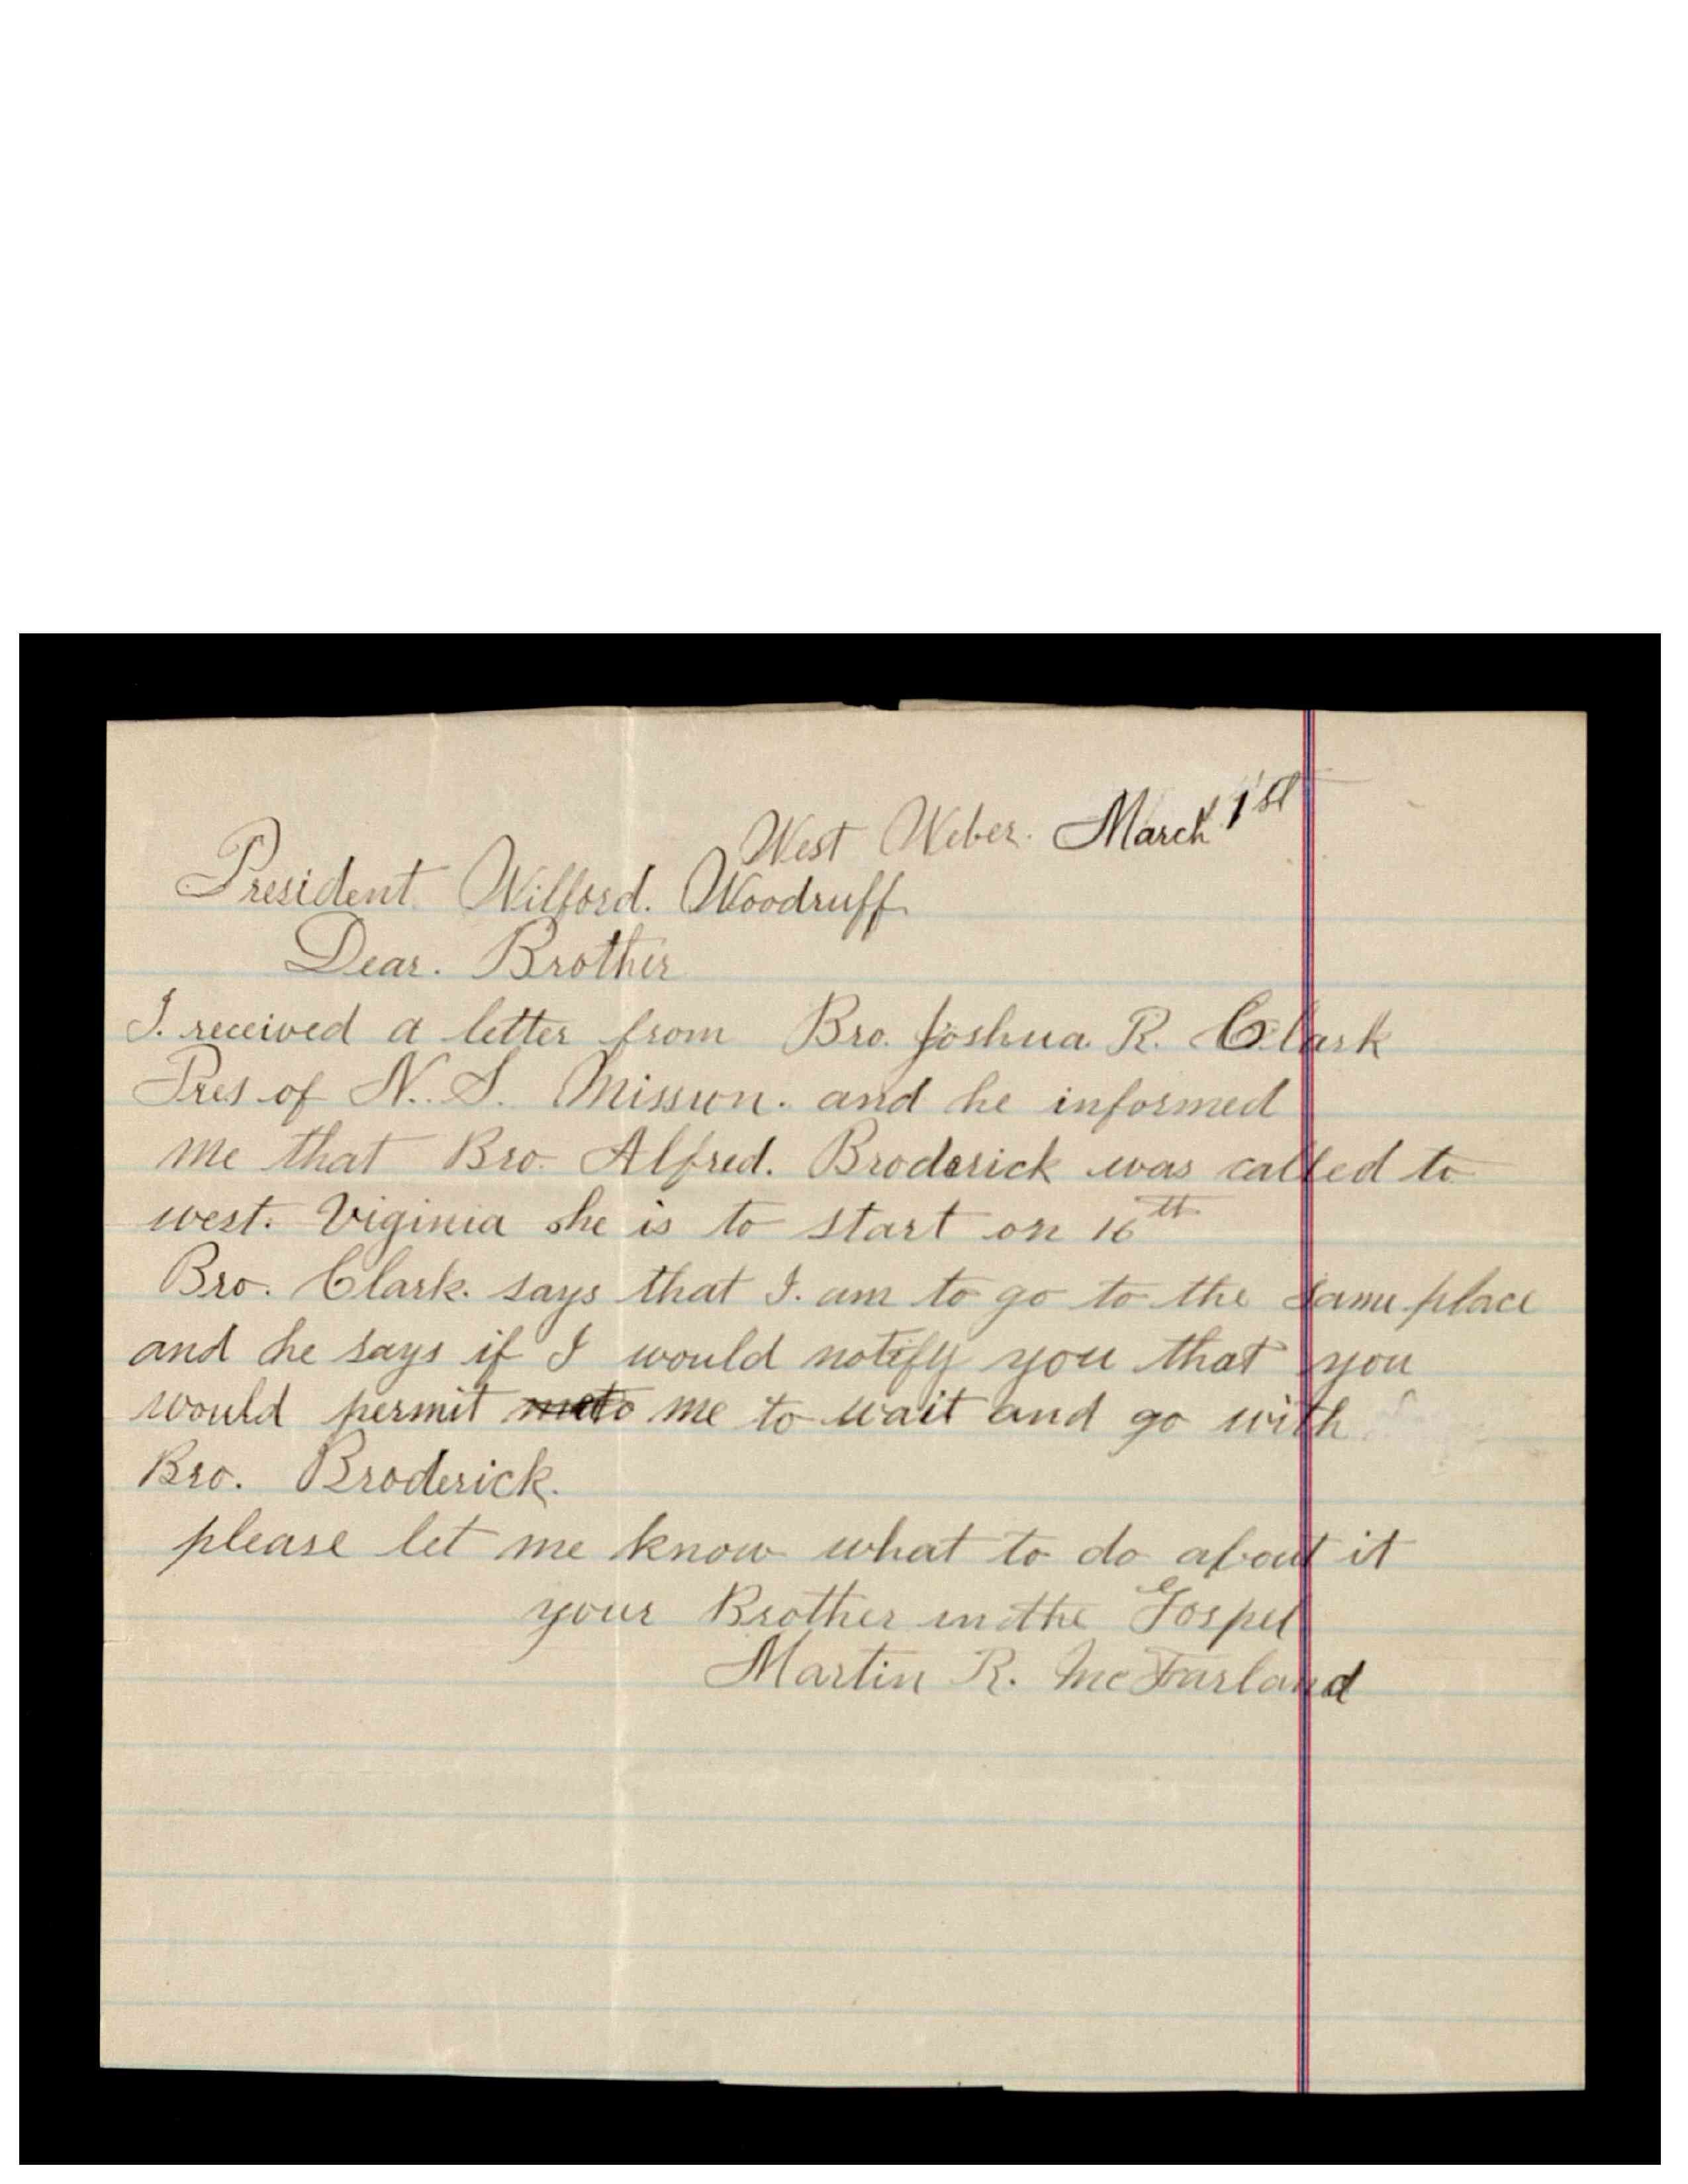 West Weber. March 1st
President Wilford. Woodruff
Dear. Brother
I. received a letter from Bro. Joshua. R. Clark
Pres of N. S. Mission. and he informed
me that Bro. Alfred. Broderick was called to
west. Viginia she is to start on 16th
Bro. Clark. says that I. am to go to the same place
and he says if I would notify you that you
would permit me to wait and go with
Bro. Broderick.
please let me know what to do about it
your Brother in the Gospel
Martin R. McFarland